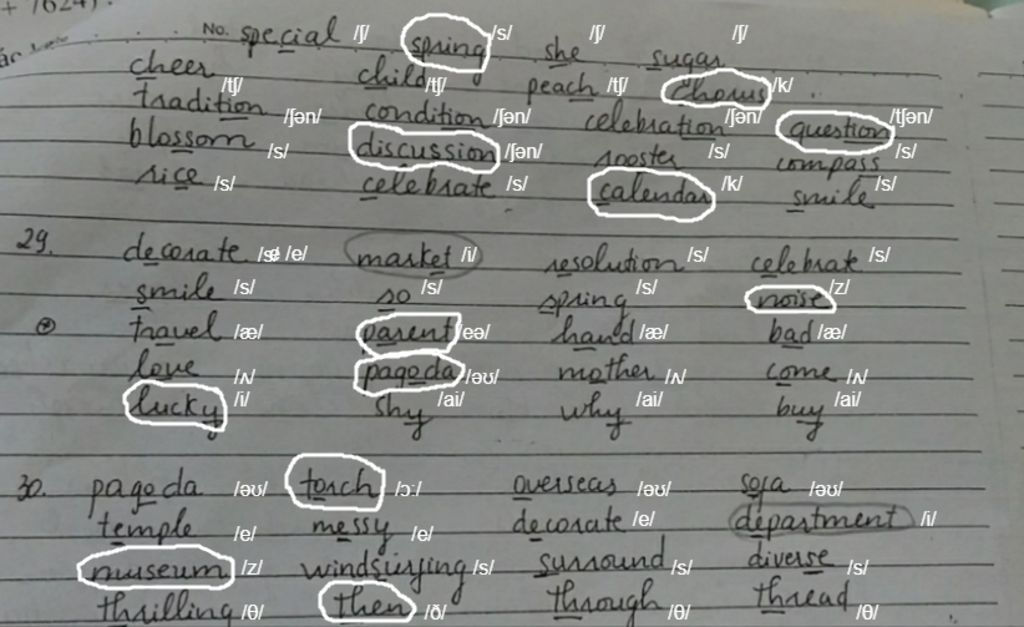 + 7624).
No. special /ʃ/ spring /s/ she /ʃ/ sugar /ʃ/
cheer /tʃ/ child /tʃ/ peach /tʃ/ chorus /k/
tradition /ʃən/ condition /ʃən/ celebration /ʃən/ question /tʃən/
blossom /s/ discussion /ʃən/ rooster /s/ compass /s/
rice /s/ celebrate /s/ calendar /k/ smile /s/
29. decorate /e/ market /i/ resolution /s/ celebrate /s/
smile /s/ so /s/ spring /s/ noise /z/
travel /æ/ parent /eə/ hand /æ/ bad /æ/
love /ʌ/ pagoda /əʊ/ mother /ʌ/ come /ʌ/
lucky /i/ shy /ai/ why /ai/ buy /ai/
30. pagoda /əʊ/ torch /ɔ:/ overseas /əʊ/ sofa /əʊ/
temple /e/ messy /e/ decorate /e/ department /i/
museum /z/ windsurfing /s/ surround /s/ diverse /s/
thrilling /θ/ then /ð/ through /θ/ thread /θ/